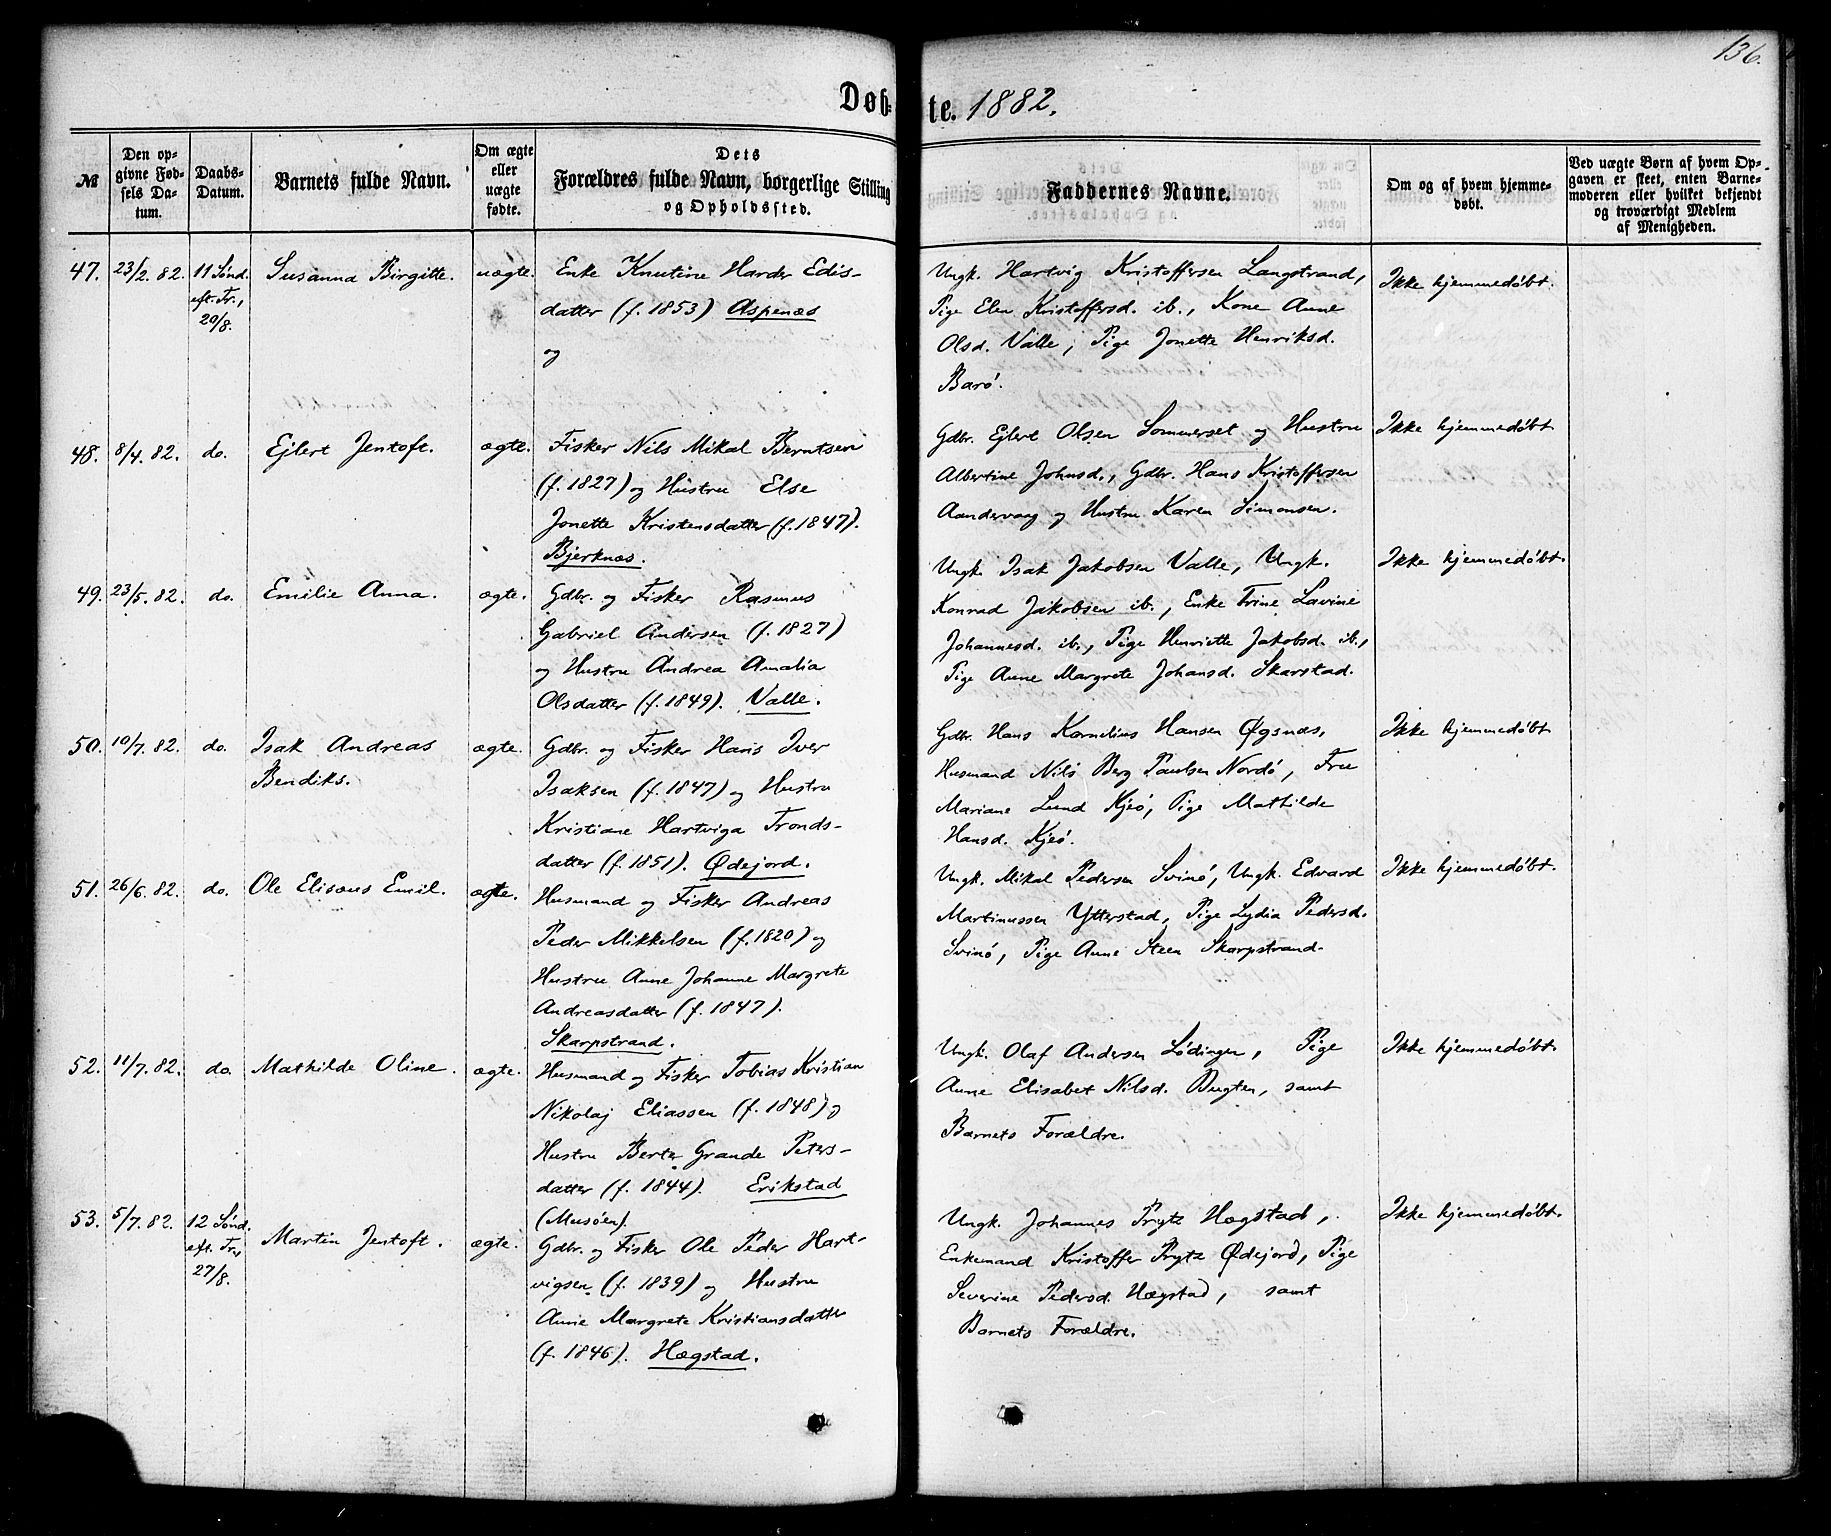 136.
Døb-te. 1882.
№
Den op-
givne Fød-
sels Da-
tum.
Daabs-
Datum.
Barnets fulde Navn.
Om ægte
eller
uægte
fødte.
Dets
Forældres fulde Navn, borgerlige Stilling
og Opholdssted.
Faddernes Navne.
Om og af hvem hjemme-
døbt.
Ved uægte Børn af hvem Op-
gaven er skeet, enten Barne-
moderen eller hvilket bekjendt
og troværdigt Medlem
af Menigheden.
47. 23/2. 82. 11 Sønd.
eft. Tr.,
20/8.
Susanna Birgitte. uægte.
Enke Knutine Harder Edis-
datter (f. 1853) Aspenæs
og
Ungk. Hartvig Kristoffersen Langstrand,
Pige Elen Kristoffersd. ib., Kone Anne
Olsd. Valle, Pige Jonette Henriksd.
Barø.
Ikke hjemmedøbt.
48. 8/4. 82. do. Ejlert Jentoft. ægte.
Fisker Nils Mikal Berntsen
(f. 1827) og Hustru Else
Jonette Kristensdatter (f. 1847).
Bjerknæs.
Gdbr. Ejlert Olsen Sommerset og Hustru
Albertine Johnsd., Gdbr. Hans Kristoffersen
Aandervaag og Hustru Karen Simonsen.
Ikke hjemmedøbt.
49. 23/5. 82. do. Emilie Anna. ægte.
Gdbr. og Fisker Rasmus
Gabriel Andersen (f. 1827)
og Hustru Andrea Amalia
Olsdatter (f. 1849). Valle.
Ungk. Isak Jakobsen Valle, Ungk.
Konrad Jakobsen ib., Enke Trine Lavine
Johannesd. ib., Pige Henriette Jakobsd. ib.,
Pige Anne Margrete Johansd. Skarstad.
Ikke hjemmedøbt.
50. 10/7. 82. do. Isak Andreas
Bendiks. ægte.
Gdbr. og Fisker Hans Iver
Isaksen (f. 1847) og Hustru
Kristiane Hartviga Tronds-
datter (f. 1851). Ødejord.
Gdbr. Hans Kornelius Hansen Øgsnæs,
Husmand Nils Berg Paulsen Nordø, Fru
Mariane Lund Kjeø, Pige Mathilde
Hansd. Kjeø.
Ikke hjemmedøbt.
51. 26/6. 82. do. Ole Elisæus Emil. ægte.
Husmand og Fisker Andreas
Peder Mikkelsen (f. 1820) og
Hustru Anne Johanne Margrete
Andreasdatter (f. 1847).
Skarpstrand.
Ungk. Mikal Pedersen Svinø, Ungk. Edvard
Martinussen Ytterstad, Pige Lydia Pedersd.
Svinø, Pige Anne Steen Skarpstrand.
Ikke hjemmedøbt.
52. 11/7. 82. do. Mathilde Oline. ægte.
Husmand og Fisker Tobias Kristian
Nikolaj Eliassen (f. 1848) og
Hustru Berte Grande Peters-
datter (f. 1844). Erikstad
(Musøen).
Ungk. Olaf Andersen Lødingen, Pige
Anne Elisabet Nilsd. Bugten, samt
Barnets Forældre.
Ikke hjemmedøbt.
53. 5/7. 82. 12 Sønd.
eft. Tr.,
27/8.
Martin Jentoft. ægte.
Gdbr. og Fisker Ole Peder Hart-
vigsen (f. 1839) og Hustru
Anne Margrete Kristiansdatter
(f. 1846). Hægstad.
Ungk. Johannes Prytz Hægstad,
Enkemand Kristoffer Prytz Ødejord, Pige
Severine Pedersd. Hægstad, samt
Barnets Forældre.
Ikke hjemmedøbt.